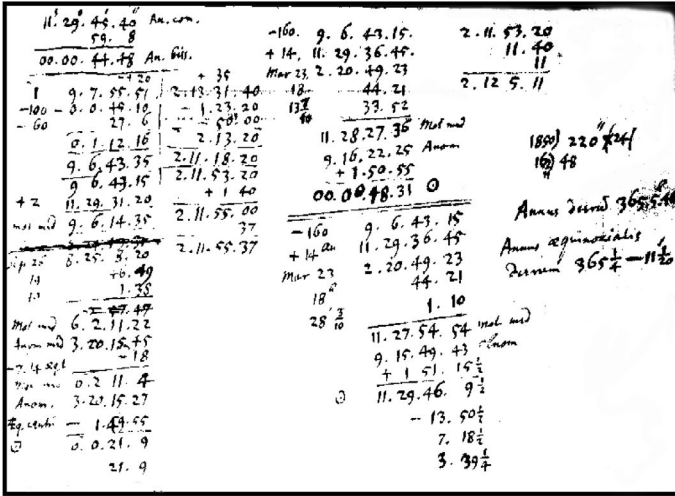 11ˢ. 29°. 45'. 40" An. com.
59. 8
00. 00. 44. 48 An. biss.
+ 20
1 9. 7. 55. 51
-100 - 0. 0. 45. 10
- 60 27. 6
0. 1. 12. 16
9. 6. 43. 35
9 6. 43. 15
+2 11. 29. 31. 20
mot med 9. 6. 14. 35
8. 25. 8. 20
14 +6. 49
1. 35
Mot med 6. 2. 11. 22
Anom med 3. 20. 15. 45
- 18
0. 2 11. 4
Anom. 3. 20. 15. 27
Eq. centri - 1. 49. 55
☉ 0. 0. 21. 9
21. 9
+ 35
2. 13. 31. 40
- 1. 23. 20
- 50. 00
2. 13. 20
2. 11. 18. 20
2. 11. 53. 20
+ 1 40
2. 11. 55. 00
37
2. 11. 55. 37
-160. 9. 6. 43. 15.
+ 14, 11. 29. 36. 45.
Mar 23, 2. 20. 49. 23
18 44. 21
33. 52
11. 28. 27. 36 Mot med
9. 16. 22. 25 Anom
+ 1. 50. 55
00. 00. 48. 31 ☉
- 160 9. 6. 43. 15
+ 14 au 11. 29. 36. 45
Mar 23 2. 20. 49. 23
18ʰ 44. 21
28' 3/10 1. 10
11. 27. 54. 54 mot med
9. 15. 49. 43 Anom
+ 1 51. 15½
☉ 11. 29. 46. 9½
- 13. 50½
7. 18½
3. 39¼
2. 11. 53. 20
11. 40
11
2. 12 5. 11
1850) 220
48
Annus
Annus æquinoxialis
365¼ — 11